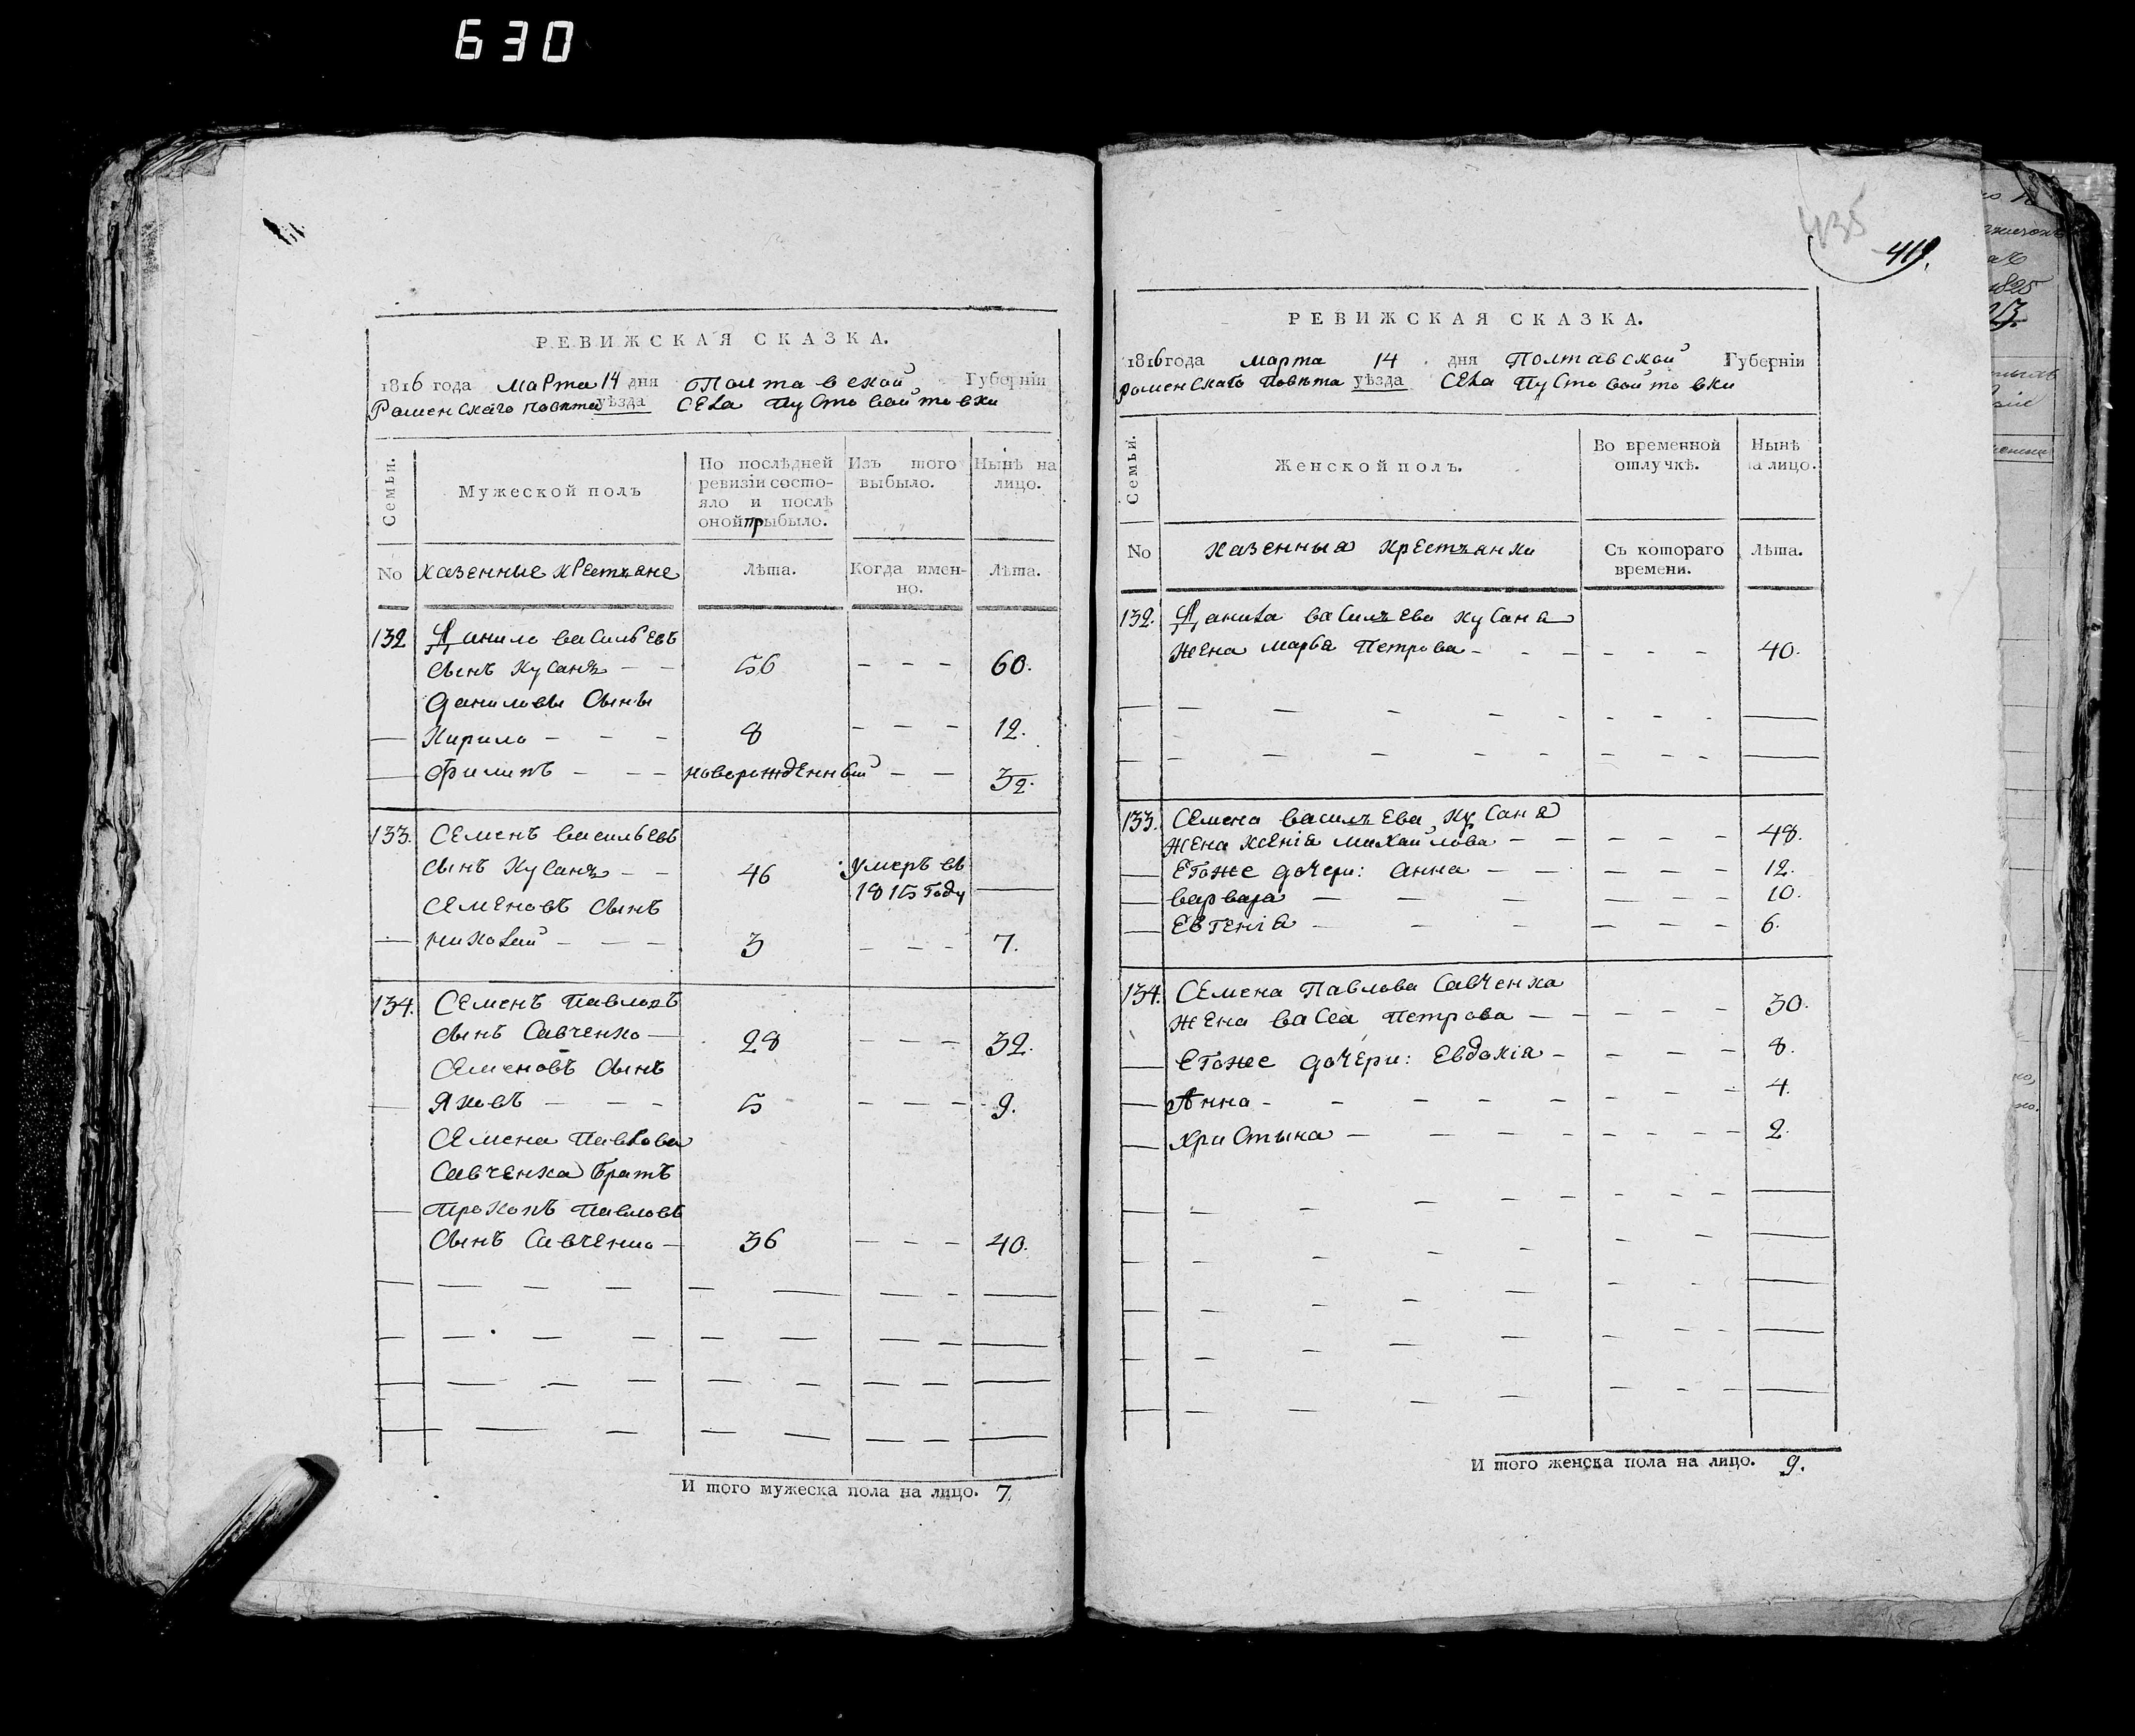 630
РЕВИЖСКАЯ СКАЗКА.
1816 года Марта 14 дня Полтавской Губерніи
Роменскаго повѣта уѣзда СЕла Пустовойтовки
Семьи.
Мужеской полъ
По послѣдней ревизіи состо-
яло и послѣ
оной прыбыло.
Изъ того
выбыло.
Нынѣ на
лицо.
No
казенные крестъяне
Лѣта.
Когда имен-
но.
Лѣта.
132 Данило васильевъ
сынъ Кусанъ 56 60.
Даниловы сыны
Кирило 8 12.
Филипъ новорожденный 3½.
133. Семенъ васильевъ
сынъ Кусанъ 46 умеръ въ
1815 году
Семеновъ сынъ
николай 3 7.
134. Семенъ Павловъ
сынъ Савченко 28 32.
Семеновъ сынъ
Яковъ 5 9.
Семена Павлова
Савченка братъ
Прокопъ Павловъ
сынъ Савченко 36 40.
И того мужеска пола на лицо. 7.
435
419.
РЕВИЖСКАЯ СКАЗКА.
1816 года марта 14 дня Полтавской Губерніи
роменскаго повѣта уѣзда СЕла Пустовойтовки
Семьи.
Женской полъ.
Во временной
отлучкѣ.
Нынѣ
на лицо.
No
казенныя крестъянки
Съ котораго
времени.
Лѣта.
132. Данила василъева кусана
жена марва Петрова 40.
133. Семена василъева кусана
жена ксенія михайлова 48.
Егоже дочери: анна 12.
варвара 10.
Евгенія 6.
134. Семена Павлова Савченка
жена васса Петрова 30.
Егоже дочери: Евдокія 8.
Анна 4.
христына 2.
И того женска пола на лицо. 9.